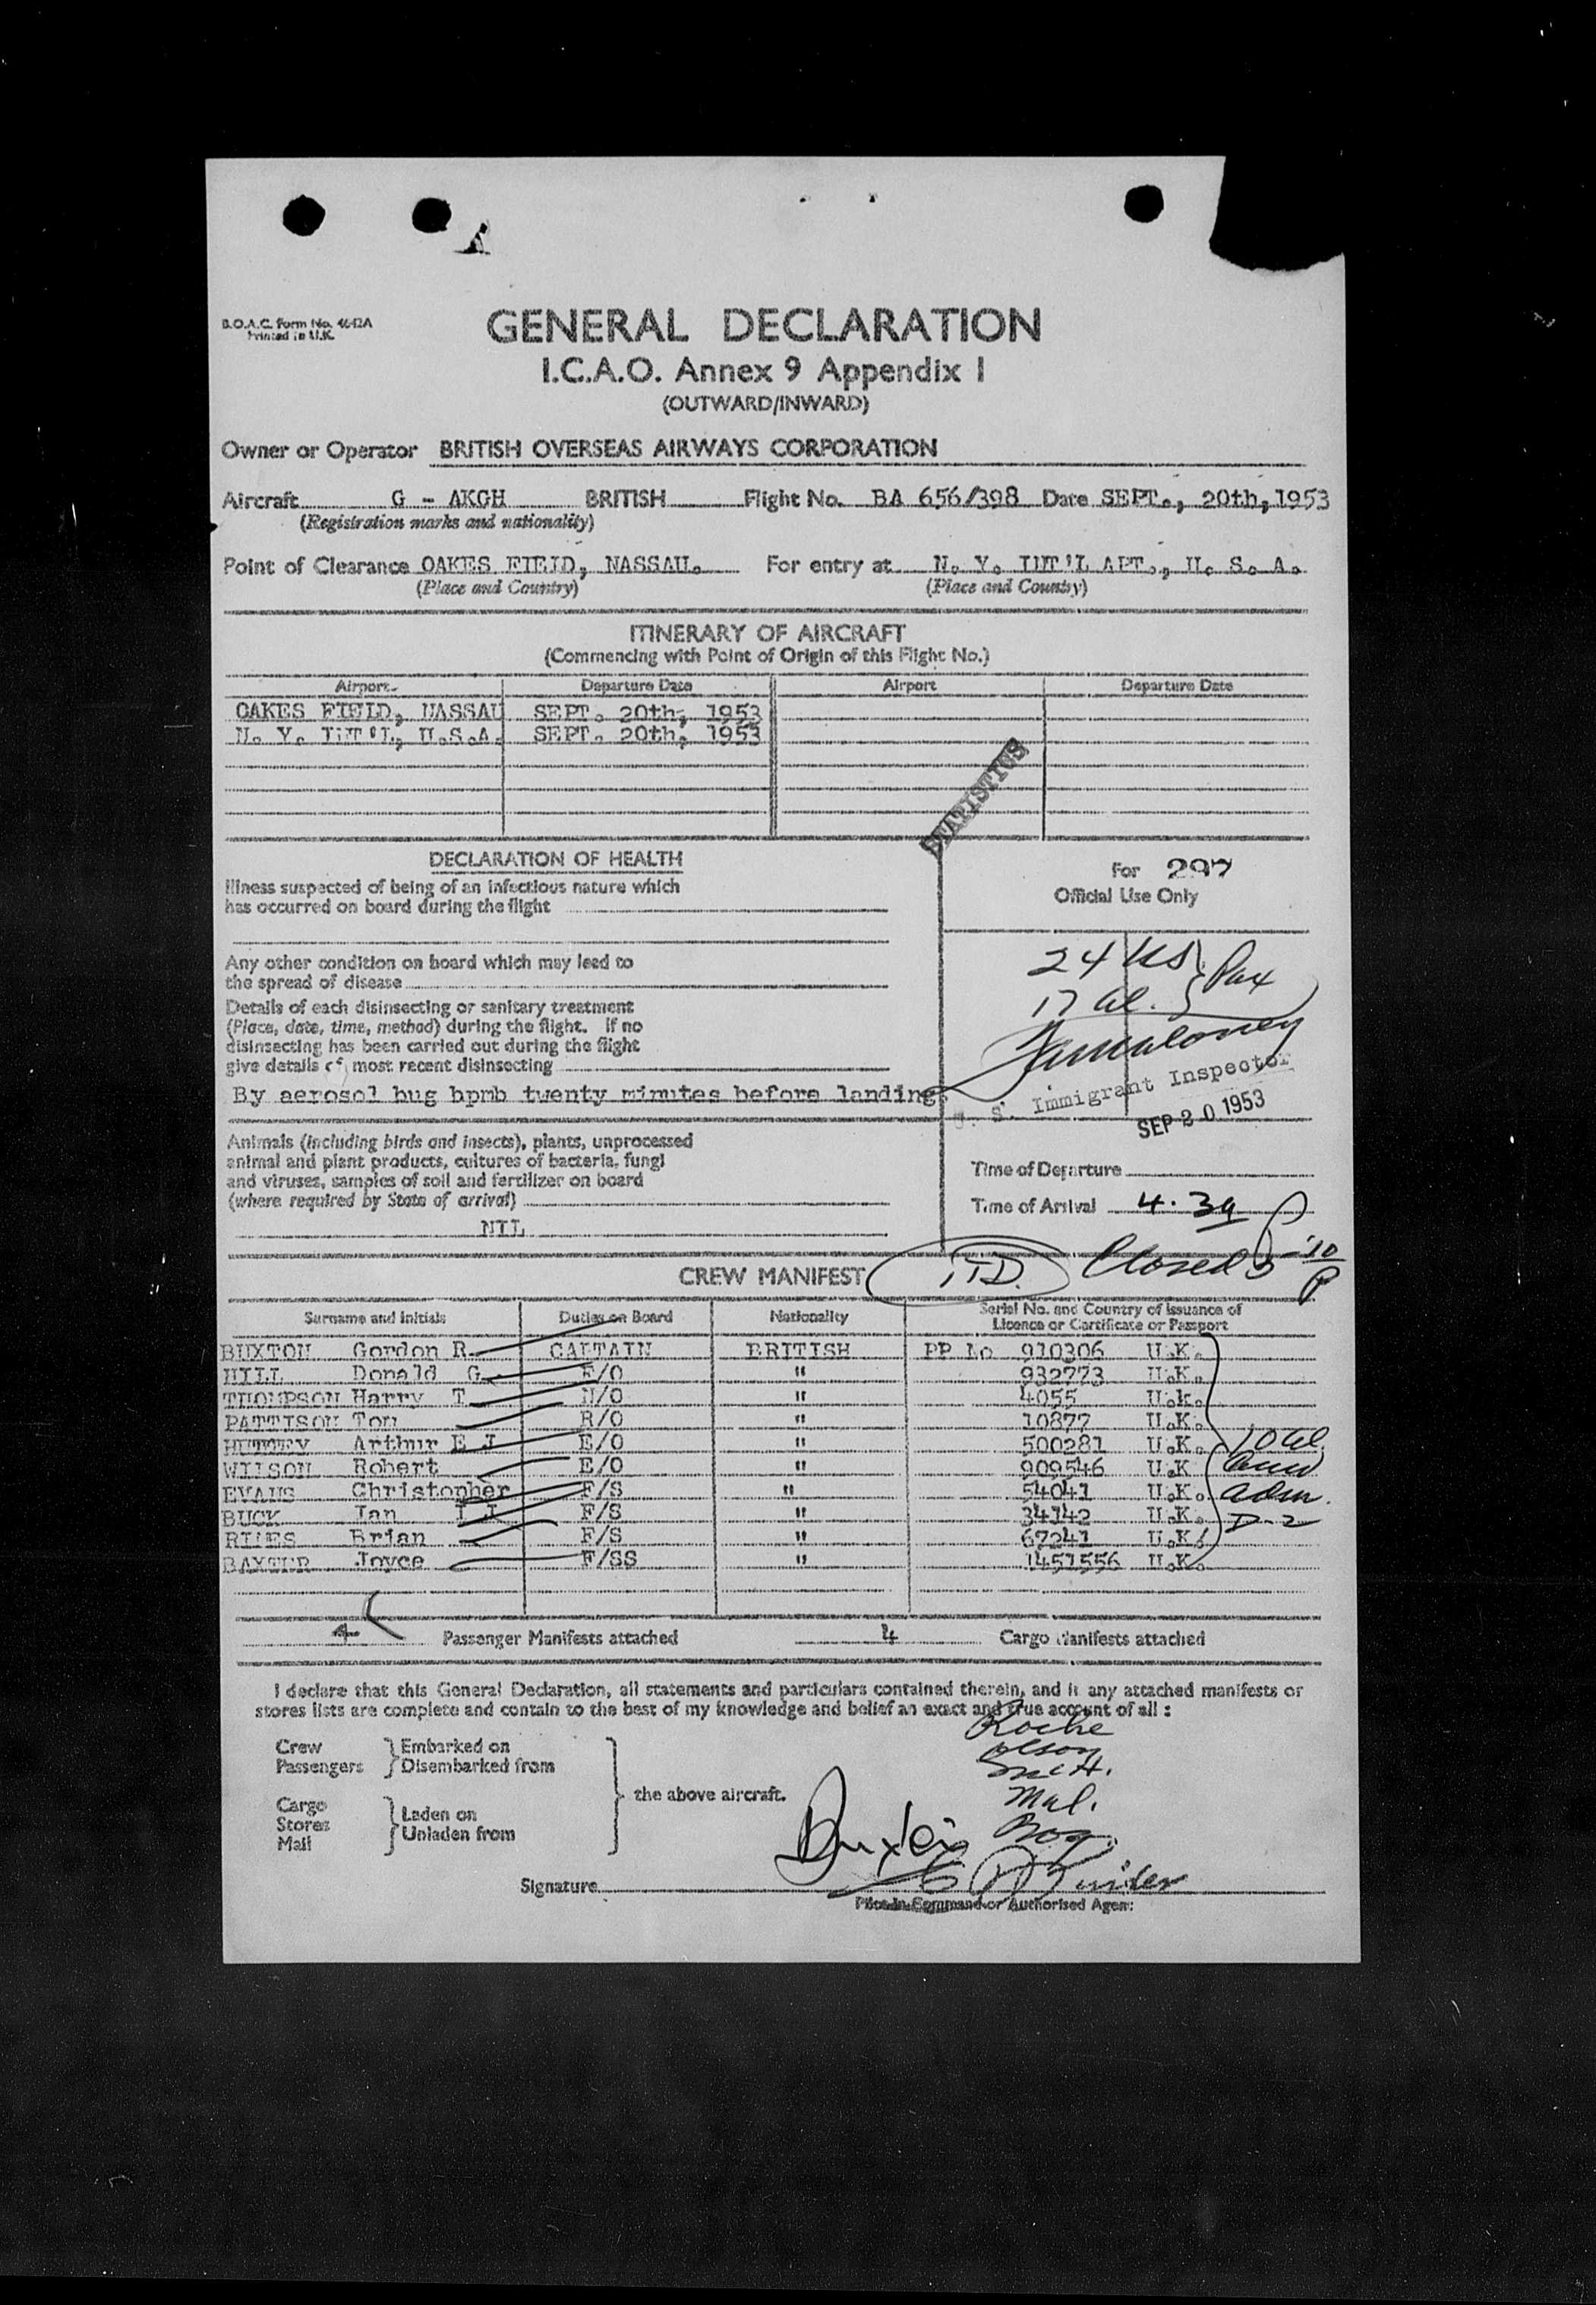 B.O.A.C. Form No. 4642A
Printed in U.K.
GENERAL DECLARATION
I.C.A.O. Annex 9 Appendix I
(OUTWARD/INWARD)
Owner or Operator BRITISH OVERSEAS AIRWAYS CORPORATION
Aircraft G - AKGH BRITISH Flight No. BA 656/398 Date SEPT., 20th, 1953
(Registration marks and nationality)
Point of Clearance OAKES FIELD, NASSAU. For entry at N. Y. INT'L APT., U. S. A.
(Place and Country) (Place and Country)
ITINERARY OF AIRCRAFT
(Commencing with Point of Origin of this Flight No.)
Airport Departure Date Airport Departure Date
OAKES FIELD, NASSAU SEPT. 20th, 1953
N. Y. INT'L, U.S.A. SEPT. 20th, 1953
STATISTICS
DECLARATION OF HEALTH
For 297
Official Use Only
Illness suspected of being of an infectious nature which
has occurred on board during the flight
24 US
17 al. } Pax
Any other condition on board which may lead to
the spread of disease
Details of each disinsecting or sanitary treatment
(Place, date, time, method) during the flight. If no
disinsecting has been carried out during the flight
give details of most recent disinsecting
By aerosol bug bpmb twenty minutes before landing.
U. S. Immigrant Inspector
SEP 20 1953
Animals (including birds and insects), plants, unprocessed
animal and plant products, cultures of bacteria, fungi
and viruses, samples of soil and fertilizer on board
(where required by State of arrival)
NIL
Time of Departure
Time of Arrival 4.39 P
Closed 5-10 P
CREW MANIFEST
Surname and Initials Duties on Board Nationality Serial No. and Country of Issuance of
Licence or Certificate or Passport
BUXTON Gordon R. CAPTAIN BRITISH PP No 910306 U.K.
HILL Donald G. F/O " 932773 U.K.
THOMPSON Harry T N/O " 4055 U.K.
PATTISON Tom R/O " 10877 U.K.
Arthur E J E/O " 500281 U.K.
WILSON Robert E/O " 909546 U.K
EVANS Christopher F/S " 54041 U.K.
BUCK Ian I J F/S " 34142 U.K.
Brian F/S " 67241 U.K.
BAXTER Joyce F/SS " 1451556 U.K.
10 al
adm.
D-2
4 Passenger Manifests attached 4 Cargo Manifests attached
I declare that this General Declaration, all statements and particulars contained therein, and in any attached manifests or
stores lists are complete and contain to the best of my knowledge and belief an exact and true account of all :
Crew
Passengers } Embarked on
Disembarked from
Cargo
Stores
Mail } Laden on
Unladen from
the above aircraft.
Roche
Olson
Signature
Pilot-in-Command or Authorised Agent